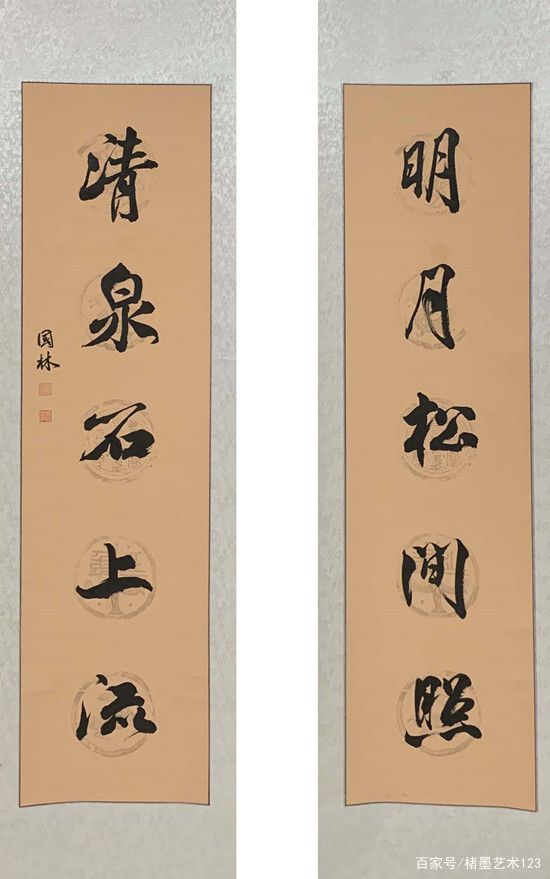 明月松间照
清泉石上流
国林
百家号/楮墨艺术123